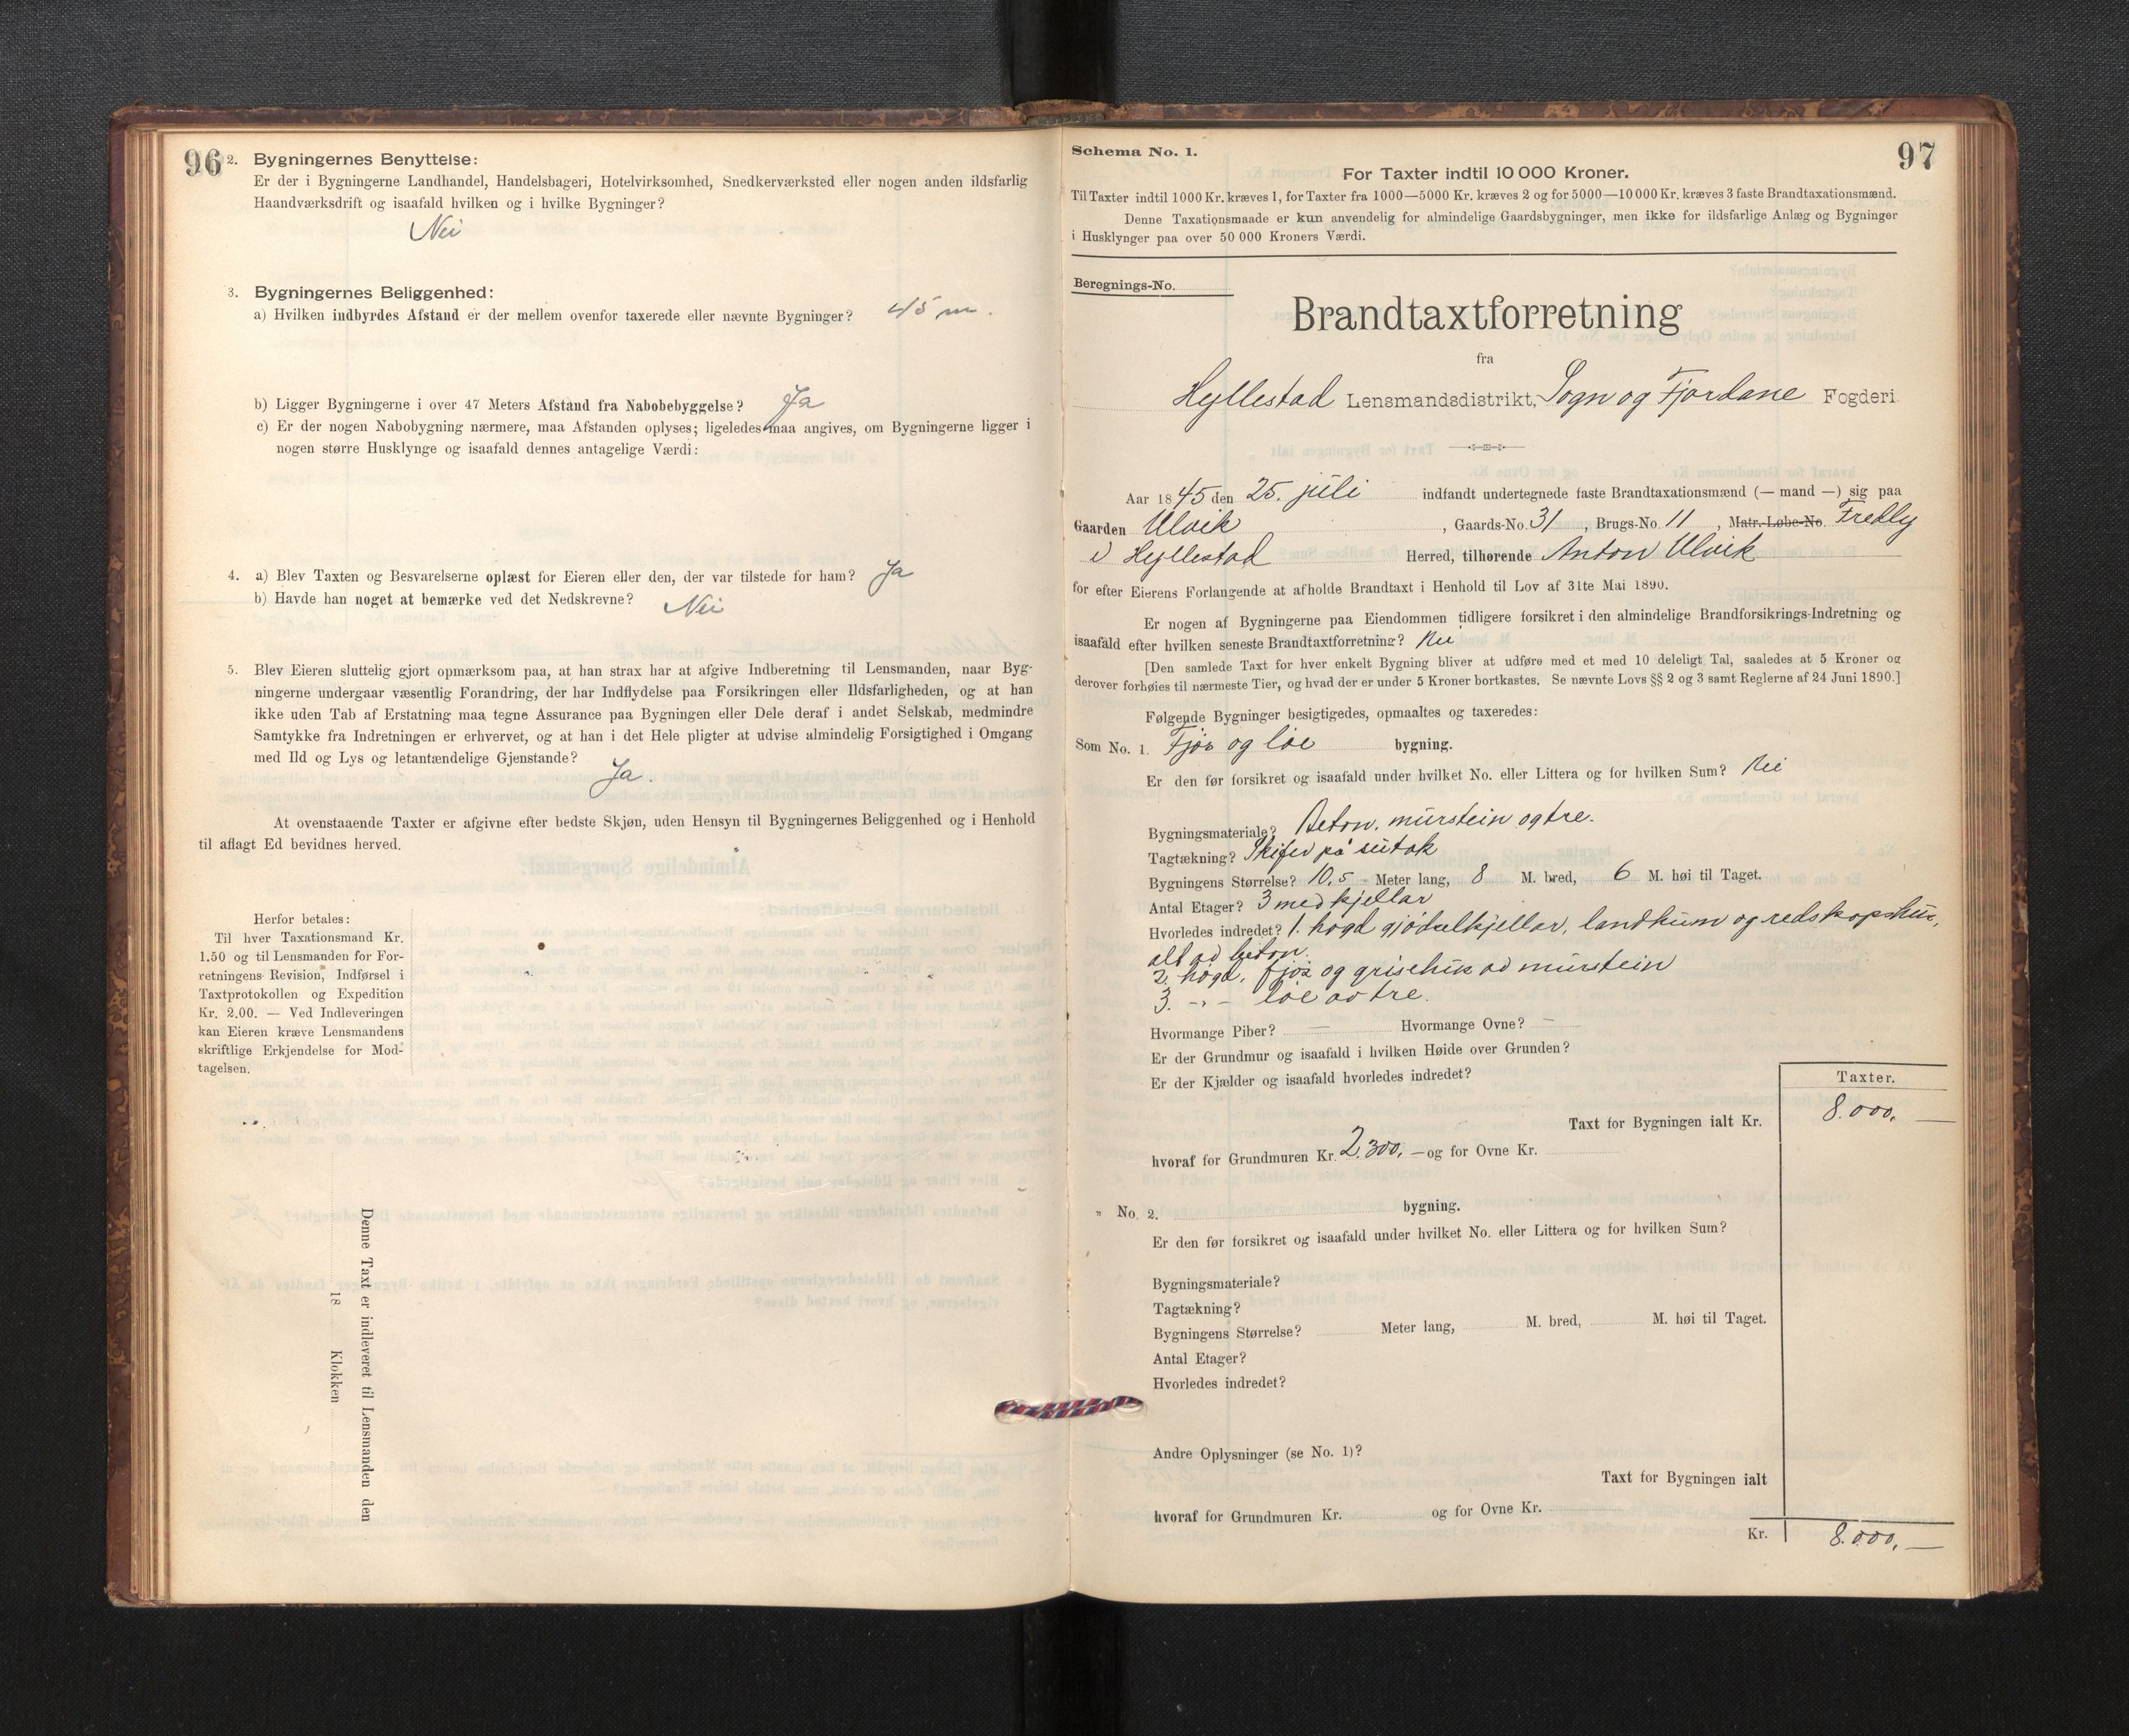 96
2. Bygningernes Benyttelse:
Er der i Bygningerne Landhandel, Handelsbageri, Hotelvirksomhed, Snedkerværksted eller nogen anden ildsfarlig
Haandværksdrift og isaafald hvilken og i hvilke Bygninger?
Nei
3. Bygningernes Beliggenhed:
a) Hvilken indbyrdes Afstand er der mellem ovenfor taxerede eller nævnte Bygninger? 45 m.
b) Ligger Bygningerne i over 47 Meters Afstand fra Nabobebyggelse? Ja
c) Er der nogen Nabobygning nærmere, maa Afstanden oplyses; ligeledes maa angives, om Bygningerne ligger i
nogen større Husklynge og isaafald dennes antagelige Værdi:
4. a) Blev Taxten og Besvarelserne oplæst for Eieren eller den, der var tilstede for ham? Ja
b) Havde han noget at bemærke ved det Nedskrevne? Nei
5. Blev Eieren sluttelig gjort opmærksom paa, at han strax har at afgive Indberetning til Lensmanden, naar Byg-
ningerne undergaar væsentlig Forandring, der har Indflydelse paa Forsikringen eller Ildsfarligheden, og at han
ikke uden Tab af Erstatning maa tegne Assurance paa Bygningen eller Dele deraf i andet Selskab, medmindre
Samtykke fra Indretningen er erhvervet, og at han i det Hele pligter at udvise almindelig Forsigtighed i Omgang
med Ild og Lys og letantændelige Gjenstande?
Ja.
At ovenstaaende Taxter er afgivne efter bedste Skjøn, uden Hensyn til Bygningernes Beliggenhed og i Henhold
til aflagt Ed bevidnes herved.
Herfor betales:
Til hver Taxationsmand Kr.
1.50 og til Lensmanden for For-
retningens Revision, Indførsel i
Taxtprotokollen og Expedition
Kr. 2.00. — Ved Indleveringen
kan Eieren kræve Lensmandens
skriftlige Erkjendelse for Mod-
tagelsen.
Denne Taxt er indleveret til Lensmanden den
18 Klokken
97
Schema No. 1.
For Taxter indtil 10 000 Kroner.
Til Taxter indtil 1000 Kr. kræves 1, for Taxter fra 1000—5000 Kr. kræves 2 og for 5000—10 000 Kr. kræves 3 faste Brandtaxationsmænd.
Denne Taxationsmaade er kun anvendelig for almindelige Gaardsbygninger, men ikke for ildsfarlige Anlæg og Bygninger
i Husklynger paa over 50 000 Kroners Værdi.
Beregnings-No.
Brandtaxtforretning
fra
Hyllestad Lensmandsdistrikt, Sogn og Fjordane Fogderi
Aar 1845 den 25. juli indfandt undertegnede faste Brandtaxationsmænd (— mand —) sig paa
Gaarden Ulvik, Gaards-No. 31, Brugs-No. 11, Matr.-Løbe-No. Fredly
i Hyllestad Herred, tilhørende Anton Ulvik
for efter Eierens Forlangende at afholde Brandtaxt i Henhold til Lov af 31te Mai 1890.
Er nogen af Bygningerne paa Eiendommen tidligere forsikret i den almindelige Brandforsikrings-Indretning og
isaafald efter hvilken seneste Brandtaxtforretning? Nei
[Den samlede Taxt for hver enkelt Bygning bliver at udføre med et med 10 deleligt Tal, saaledes at 5 Kroner og
derover forhøies til nærmeste Tier, og hvad der er under 5 Kroner bortkastes. Se nævnte Lovs §§ 2 og 3 samt Reglerne af 24 Juni 1890.]
Følgende Bygninger besigtigedes, opmaaltes og taxeredes:
Som No. 1. Fjøs og løe bygning.
Er den før forsikret og isaafald under hvilket No. eller Littera og for hvilken Sum? Nei
Bygningsmateriale? Beton, murstein og tre.
Tagtækning? Skifer på sutak
Bygningens Størrelse? 10,5 Meter lang, 8 M. bred, 6 M. høi til Taget.
Antal Etager? 3 med kjellar
Hvorledes indredet? 1. høgd gjødselkjellar, landkum og redskapshus,
alt av beton.
2. høgd. fjøs og grisehus av murstein
3. -"- løe av tre.
Hvormange Piber? — Hvormange Ovne? —
Er der Grundmur og isaafald i hvilken Høide over Grunden?
Er der Kjælder og isaafald hvorledes indredet?
Taxter.
Taxt for Bygningen ialt Kr. 8.000,—
hvoraf for Grundmuren Kr. 2.300,— og for Ovne Kr.
" No. 2. bygning.
Er den før forsikret og isaafald under hvilket No. eller Littera og for hvilken Sum?
Bygningsmateriale?
Tagtækning?
Bygningens Størrelse? Meter lang, M. bred, M. høi til Taget.
Antal Etager?
Hvorledes indredet?
Andre Oplysninger (se No. 1)?
Taxt for Bygningen ialt
hvoraf for Grundmuren Kr. og for Ovne Kr.
Kr. 8.000,—